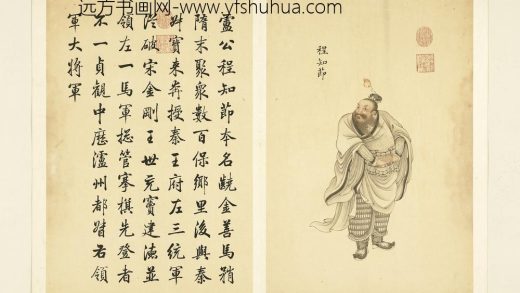 远方书画网-www.yfshuhua.com
程知節
盧公程知節本名齩金善馬矟
隋末聚衆數百保鄉里後與秦
叔寶來奔授秦王府左三統軍
從破宋金剛王世充竇建德並
領左一馬軍緫管搴旗先登者
不一貞觀中歷瀘州都督右領
軍大將軍